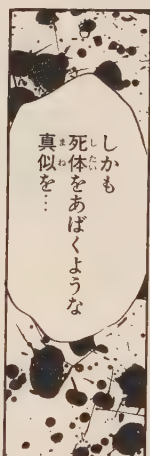 しかも
死体をあばくような
真似を…